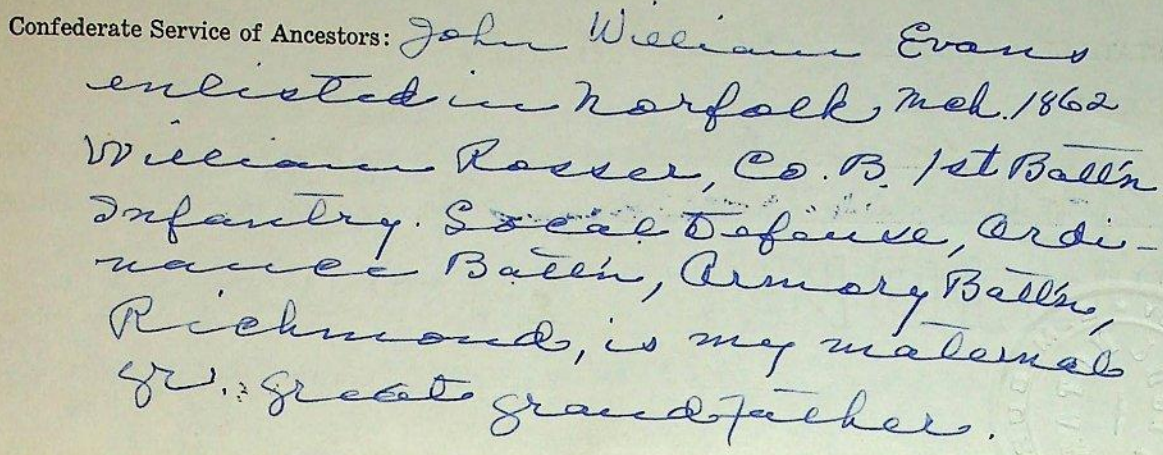 Confederate Service of Ancestors: John William Evans
enlisted in Norfolk, Mch. 1862
William Rosser, Co. B. 1st Batt'n
Infantry. Local Defense, Ordi-
nance Batt'n, Armory Batt'n,
Richmond, is my maternal
gr. great grandfather.